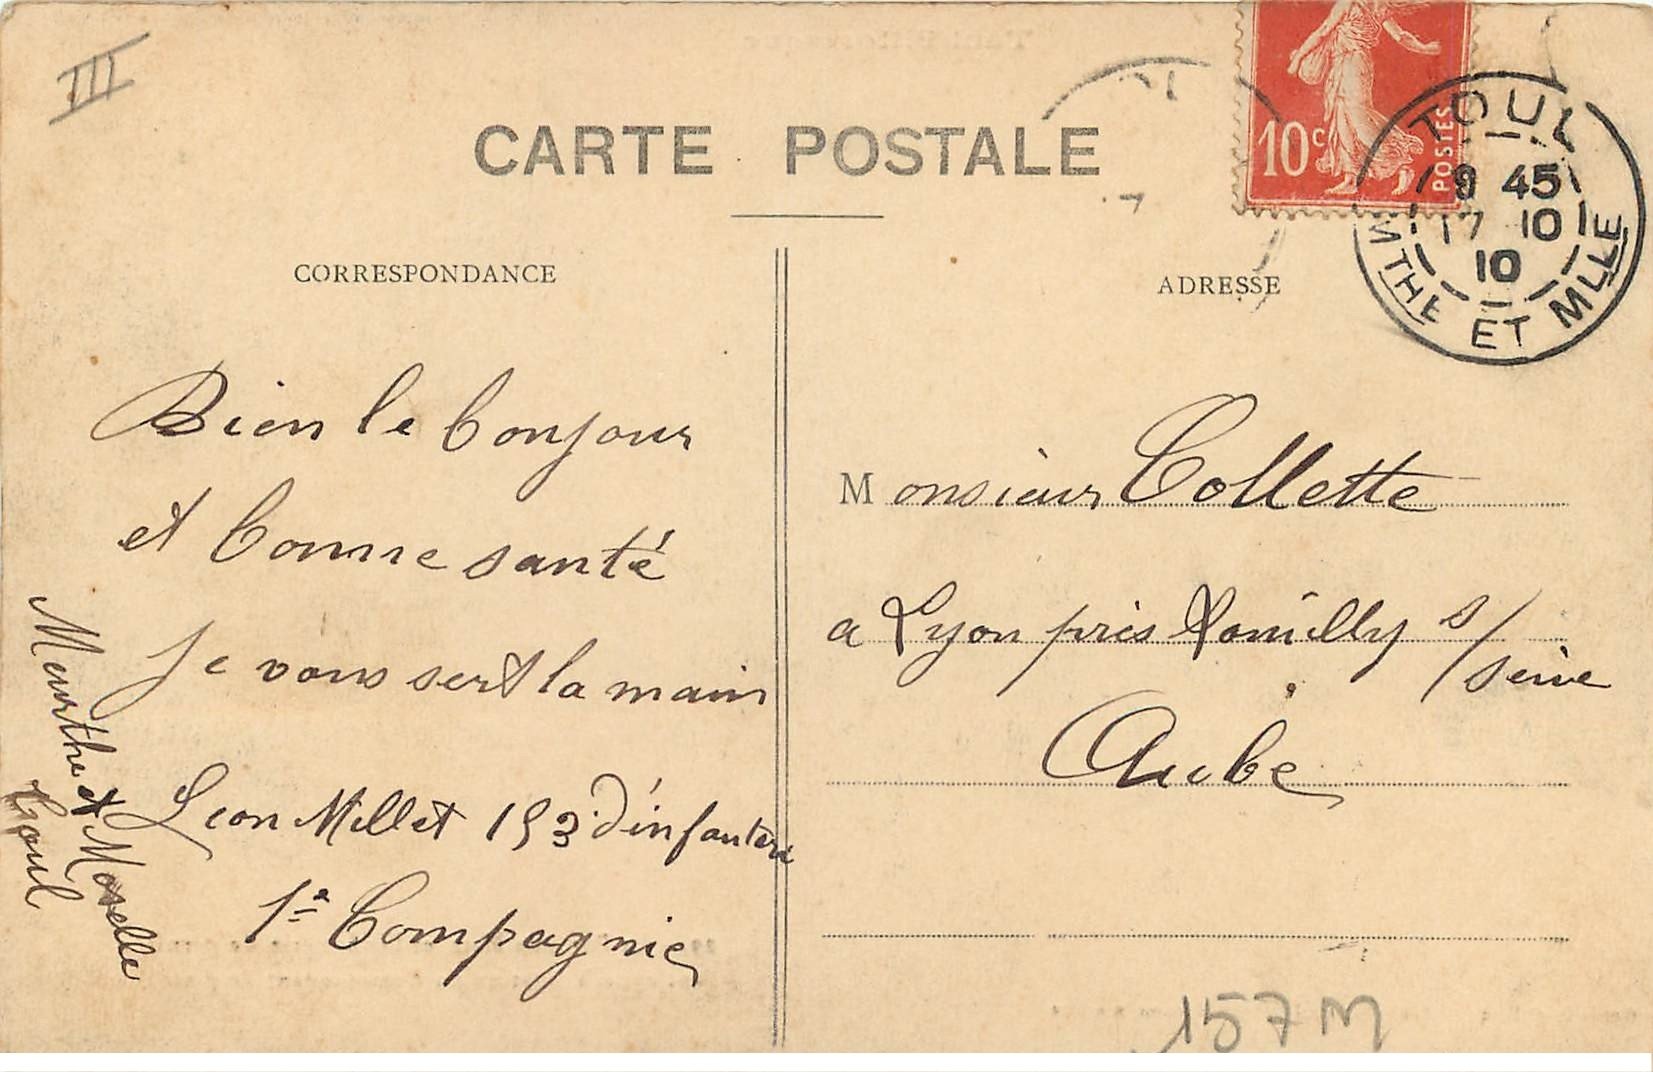 III
CARTE POSTALE
10c
POSTES
TOUL
9 45
17 10
10
MTHE ET MLLE
CORRESPONDANCE
ADRESSE
Bien le bonjour
et bonne santé
Je vous sert la main
Leon Millet 153 d'infanterie
1e Compagnie
Meurthe et Moselle
Toul
Monsieur Collette
a Lyon près Romilly s/
Seine
Aube
157 M